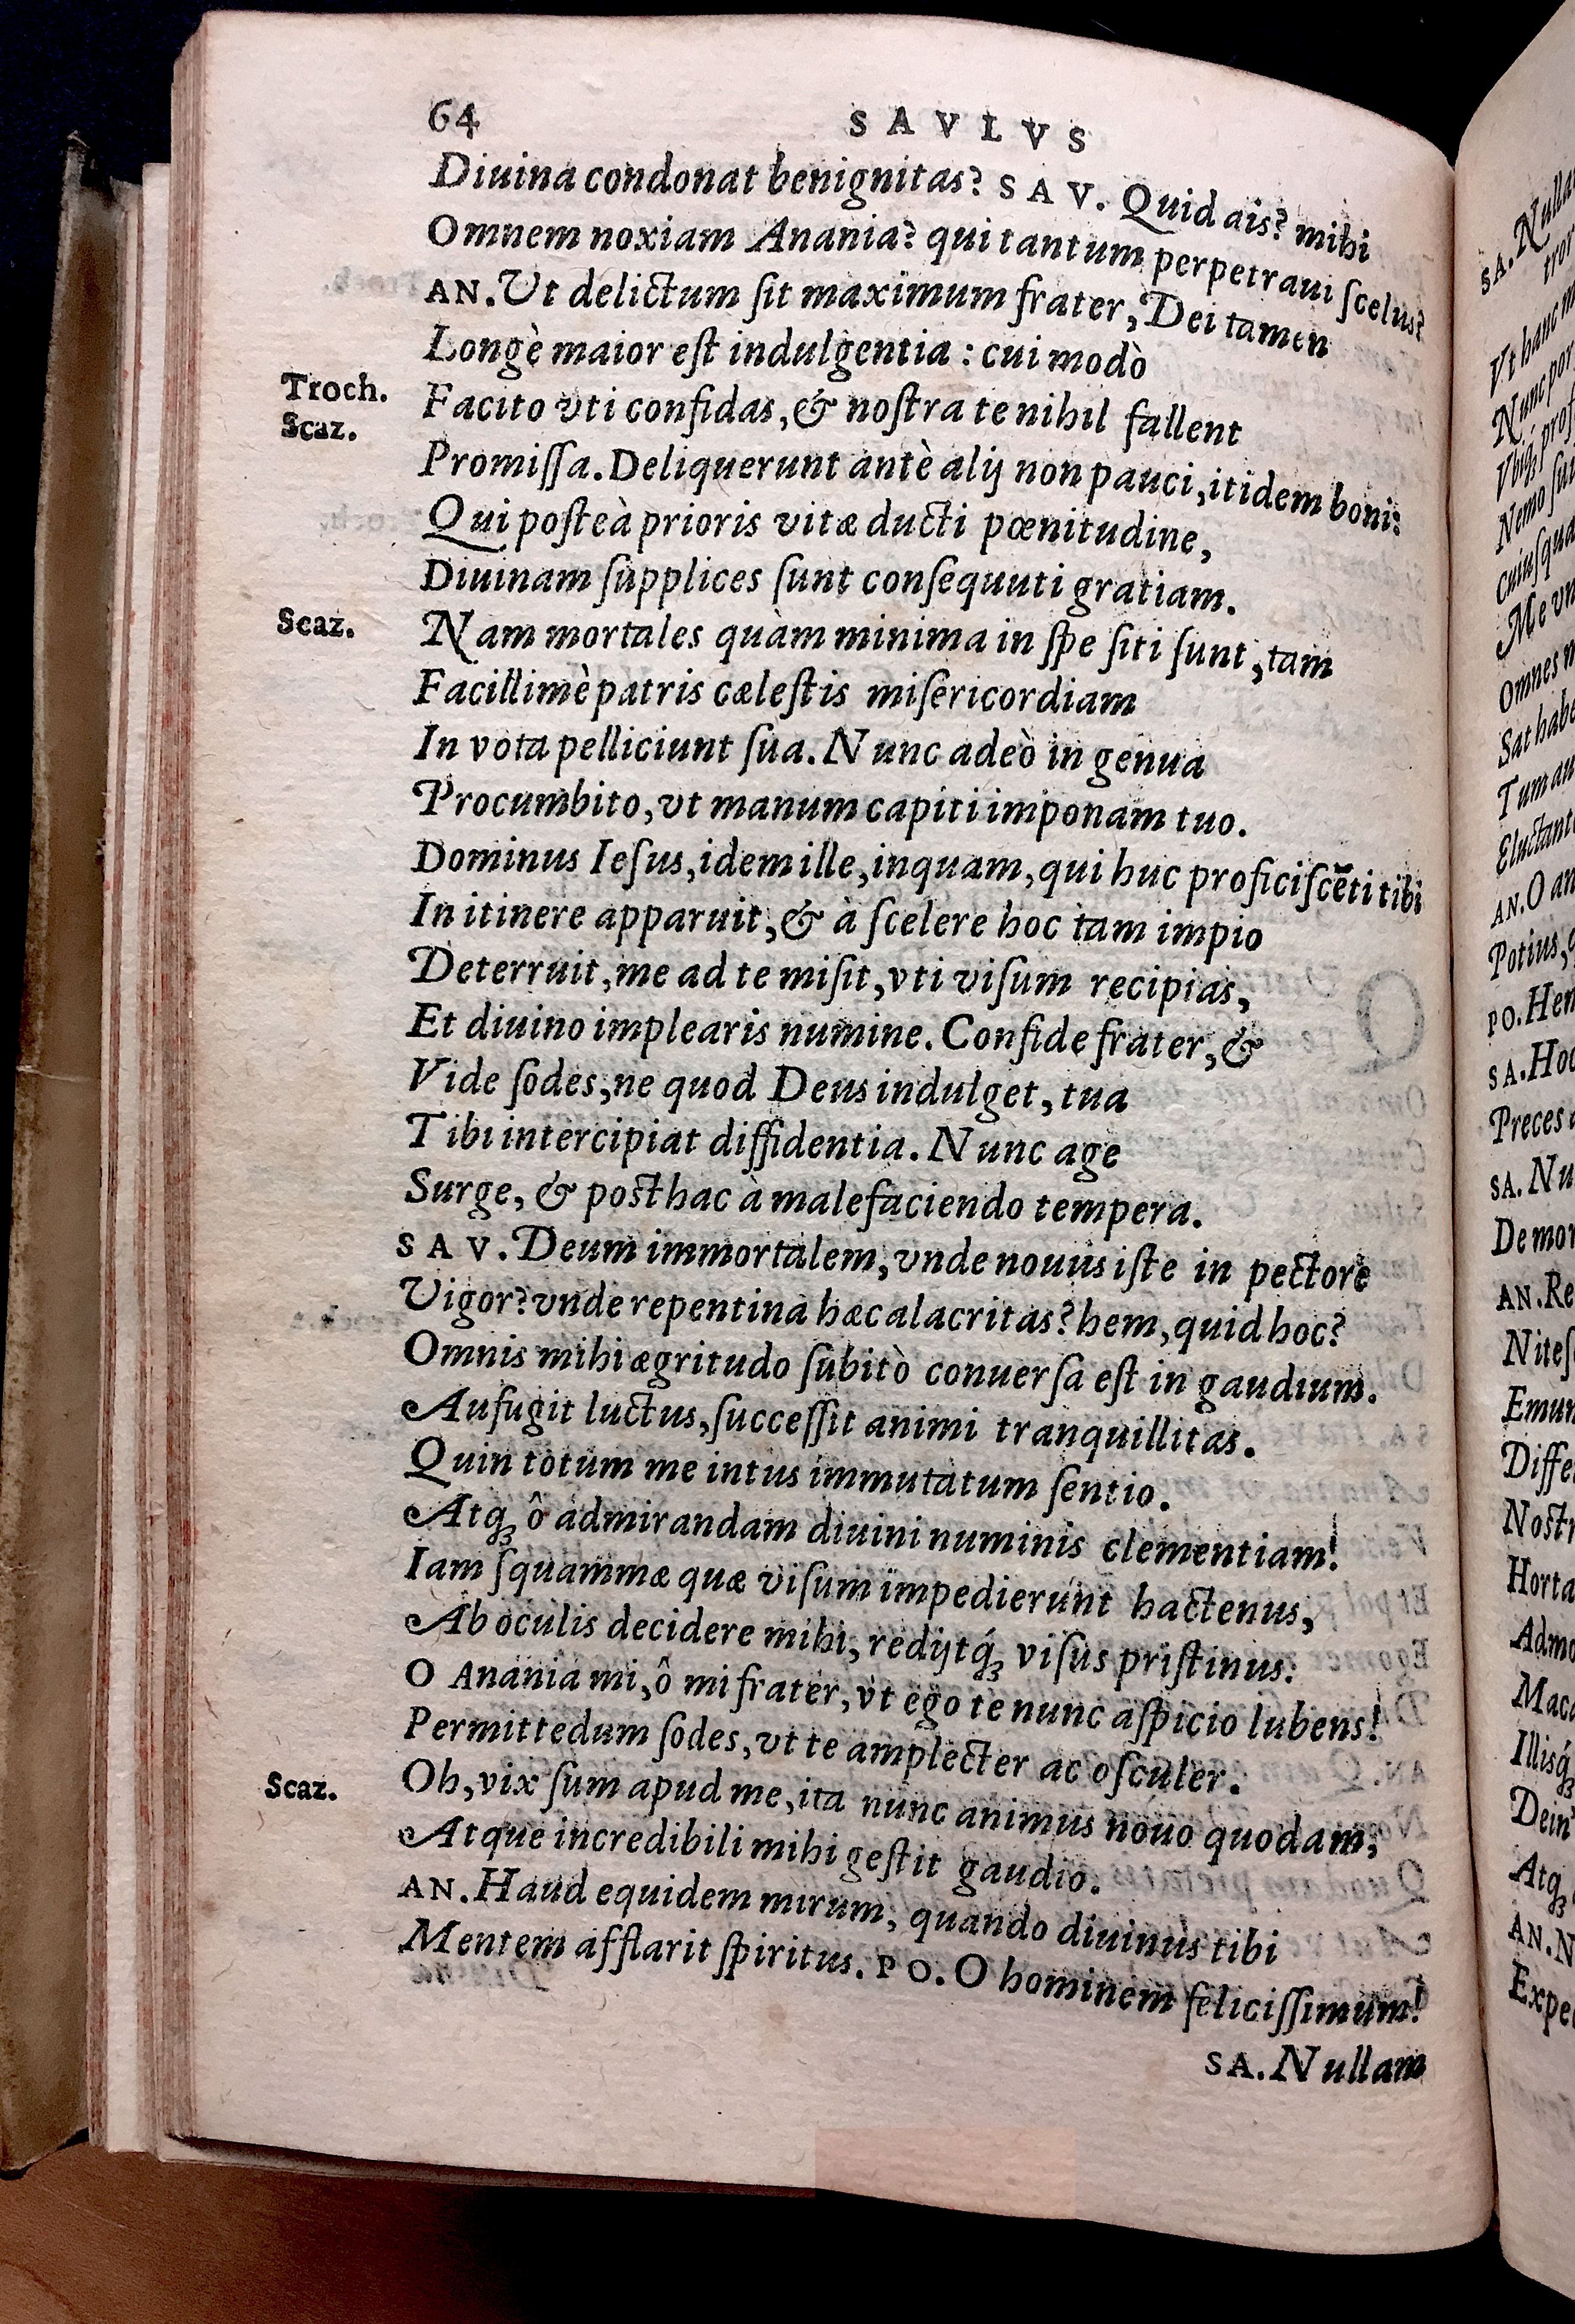 64
SAVLVS
Diuina condonat benignitas? SAV. Quid ais? mihi
Omnem noxiam Anania? qui tantum perpetraui ſcelus?
AN. Ut delictum ſit maximum frater, Dei tamen
Longè maior eſt indulgentia: cui modò
Troch. Facito vti confidas, & noſtra te nihil fallent
Scaz. Promiſſa. Deliquerunt antè alij non pauci, itidem boni:
Qui poſteà prioris vitæ ducti pœnitudine,
Diuinam ſupplices ſunt conſequuti gratiam.
Scaz. Nam mortales quàm minima in ſpe ſiti ſunt, tam
Facillimè patris cæleſtis miſericordiam
In vota pelliciunt ſua. Nunc adeò in genua
Procumbito, vt manum capiti imponam tuo.
Dominus Ieſus, idem ille, inquam, qui huc proficiſcēti tibi
In itinere apparuit, & à ſcelere hoc tam impio
Deterruit, me ad te miſit, vti viſum recipias,
Et diuino implearis numine. Confide frater, &
Vide ſodes, ne quod Deus indulget, tua
Tibi intercipiat diffidentia. Nunc age
Surge, & posthac à malefaciendo tempera.
SAV. Deum immortalem, vnde nouus iſte in pectore
Vigor? vnde repentina hæc alacritas? hem, quid hoc?
Omnis mihi ægritudo ſubitò conuerſa eſt in gaudium.
Aufugit luctus, ſucceſſit animi tranquillitas.
Quin totum me intus immutatum ſentio.
Atq; ô admirandam diuini numinis clementiam!
Iam ſquammæ quæ viſum impedierunt hactenus,
Ab oculis decidere mihi, redijtq́; viſus priſtinus:
O Anania mi, ô mi frater, vt ego te nunc aſpicio lubens!
Permittedum ſodes, vt te amplecter ac oſculer.
Scaz. Oh, vix ſum apud me, ita nunc animus nouo quodam,
Atque incredibili mihi geſtit gaudio.
AN. Haud equidem mirum, quando diuinus tibi
Mentem afflarit ſpiritus. PO. O hominem feliciſſimum!
SA. Nullam
SA. Nulla
Vt hanc
Nunc por
Vbiq;
Nemo
cuiuſqua
Me
Omnes
Sat habe
Tum au
AN. O
Potius,
PO. Hem
SA. Hoc
Preces
SA. Nu
De mor
AN. Re
Niteſ
Emun
Diffe
Nostr
Horta
Admo
Illisq́;
Dein
Atq;
AN. N
Expe